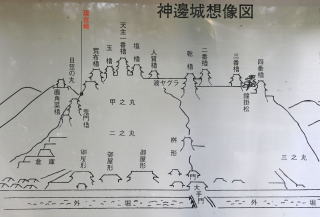 神邊城想像図
現在地
天主一番櫓
玉櫓
塩櫓
荒布櫓
人質櫓
乾櫓
二番櫓
三番櫓
四番櫓
波ヤグラ
鐘掛松
目笠の丸
鹿角菜櫓
竜門櫓
甲之丸
二之丸
三之丸
桝形
倉庫
御屋形
御屋形
御屋形
門
大手門
外堀
外堀